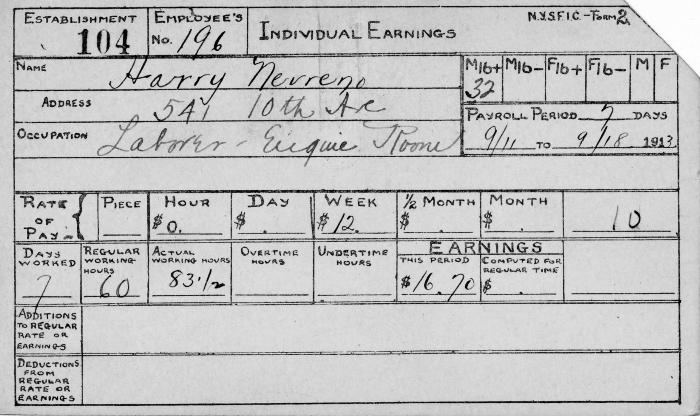 ESTABLISHMENT 104
EMPLOYEE'S No. 196
INDIVIDUAL EARNINGS
N.Y.S.F.I.C. - FORM 2
NAME Harry Nerreno
M16+ M16- F16+ F16- M F
32
ADDRESS 541 10th Ave
PAYROLL PERIOD 7 DAYS
9/11 TO 9/18 1913
OCCUPATION Laborer - Engine Room
RATE OF PAY
PIECE
HOUR $0.
DAY $ .
WEEK $12.
1/2 MONTH $ .
MONTH $ .
10
DAYS WORKED 7
REGULAR WORKING HOURS 60
ACTUAL WORKING HOURS 83 1/2
OVERTIME HOURS
UNDERTIME HOURS
EARNINGS
THIS PERIOD $16.70
COMPUTED FOR REGULAR TIME $ .
ADDITIONS TO REGULAR RATE OR EARNINGS
DEDUCTIONS FROM REGULAR RATE OR EARNINGS